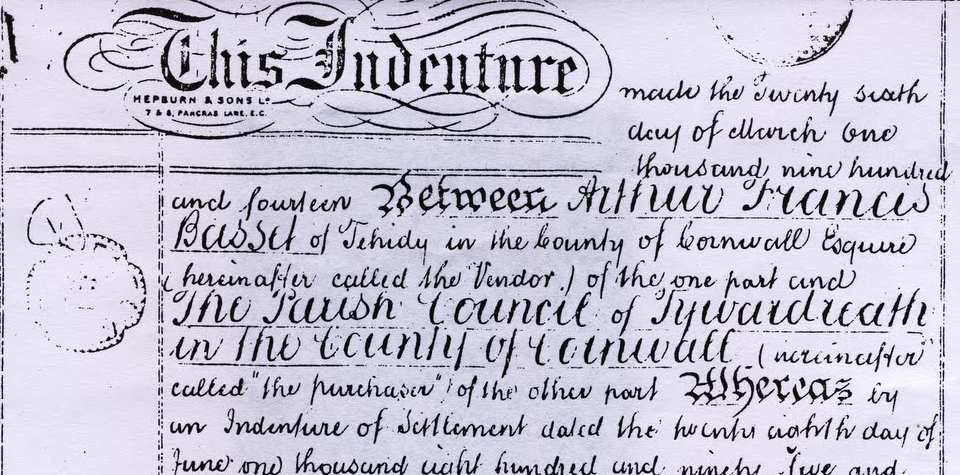 This Indenture
HEPBURN & SONS Ld.
7 & 8, PANCRAS LANE, E.C.
made the Twenty sixth
day of March One
thousand nine hundred
and fourteen Between Arthur Francis
Basset of Tehidy in the County of Cornwall Esquire
(hereinafter called the Vendor) of the one part and
The Parish Council of Tywardreath
in the County of Cornwall (hereinafter
called "the purchaser") of the other part Whereas by
an Indenture of Settlement dated the twenty eighth day of
June one thousand eight hundred and ninety five and